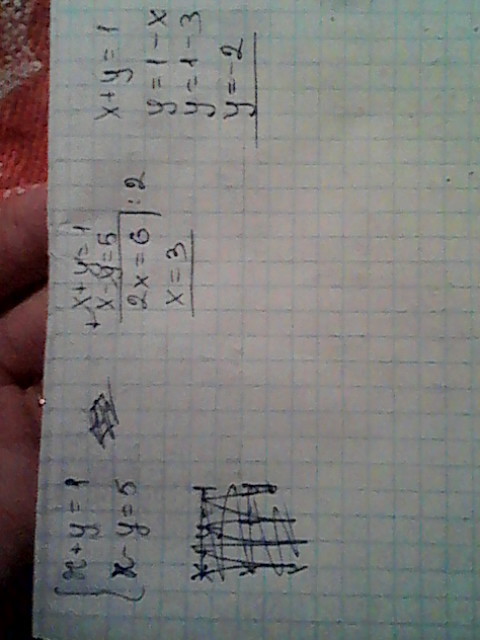 { x+y=1
x-y=5
+ x+y=1
x-y=5
2x=6 | :2
x=3
x+y=1
y=1-x
y=1-3
y=-2